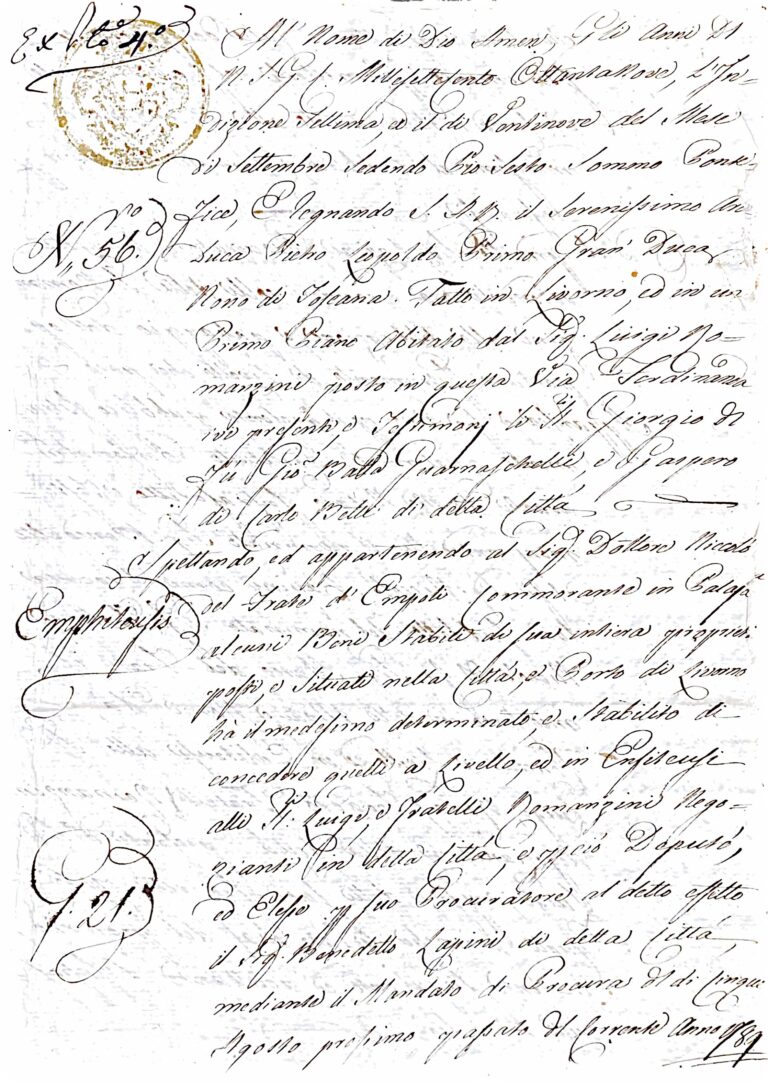 Ex Pto. 4.o
Al Nome di Dio Amen, Gli Anni Di
N. S. G. C. Millesettecento Ottanta Nove, L'In-
dizione Settima e il di Ventinove del Mese
di Settembre Sedendo Pio Sesto Sommo Ponte-
fice, E Regnando S. A. R. il Serenissimo Ar
N. 56.
Duca Pietro Leopoldo Primo Gran Duca
Nono di Toscana. Fatto in Livorno, ed in un
Primo Piano Abitato dal Sig. Luigi Ro=
manzini posto in questa Via Ferdinanda
ivi presenti, e Testimonj li SS.ri Giorgio di
fu Gio. Batta e Gaspero
di Carlo Belli di detta Città
Spettando, ed appartenendo al Sig. Dottore Niccolò
del Frate d'Empoli Commorante in Palaja
Emphiteusis
alcuni Beni Stabili di sua intiera propriet.
posti, e Situati nella Città, e Porto di Livorno
hà il medesimo determinato, e Stabilito di
concedere quelli a Livello, ed in Enfiteusi
alli SS.ri Luigi, e Fratelli Romanzini Nego=
zianti in detta Città, e perciò Deputò,
G. 21.
ed Elesse per suo Procuratore al detto effetto
il Sig. Benedetto Lapini di detta Città,
mediante il Mandato di Procura de di Cinque
Agosto prossimo passato del Corrente Anno 1789